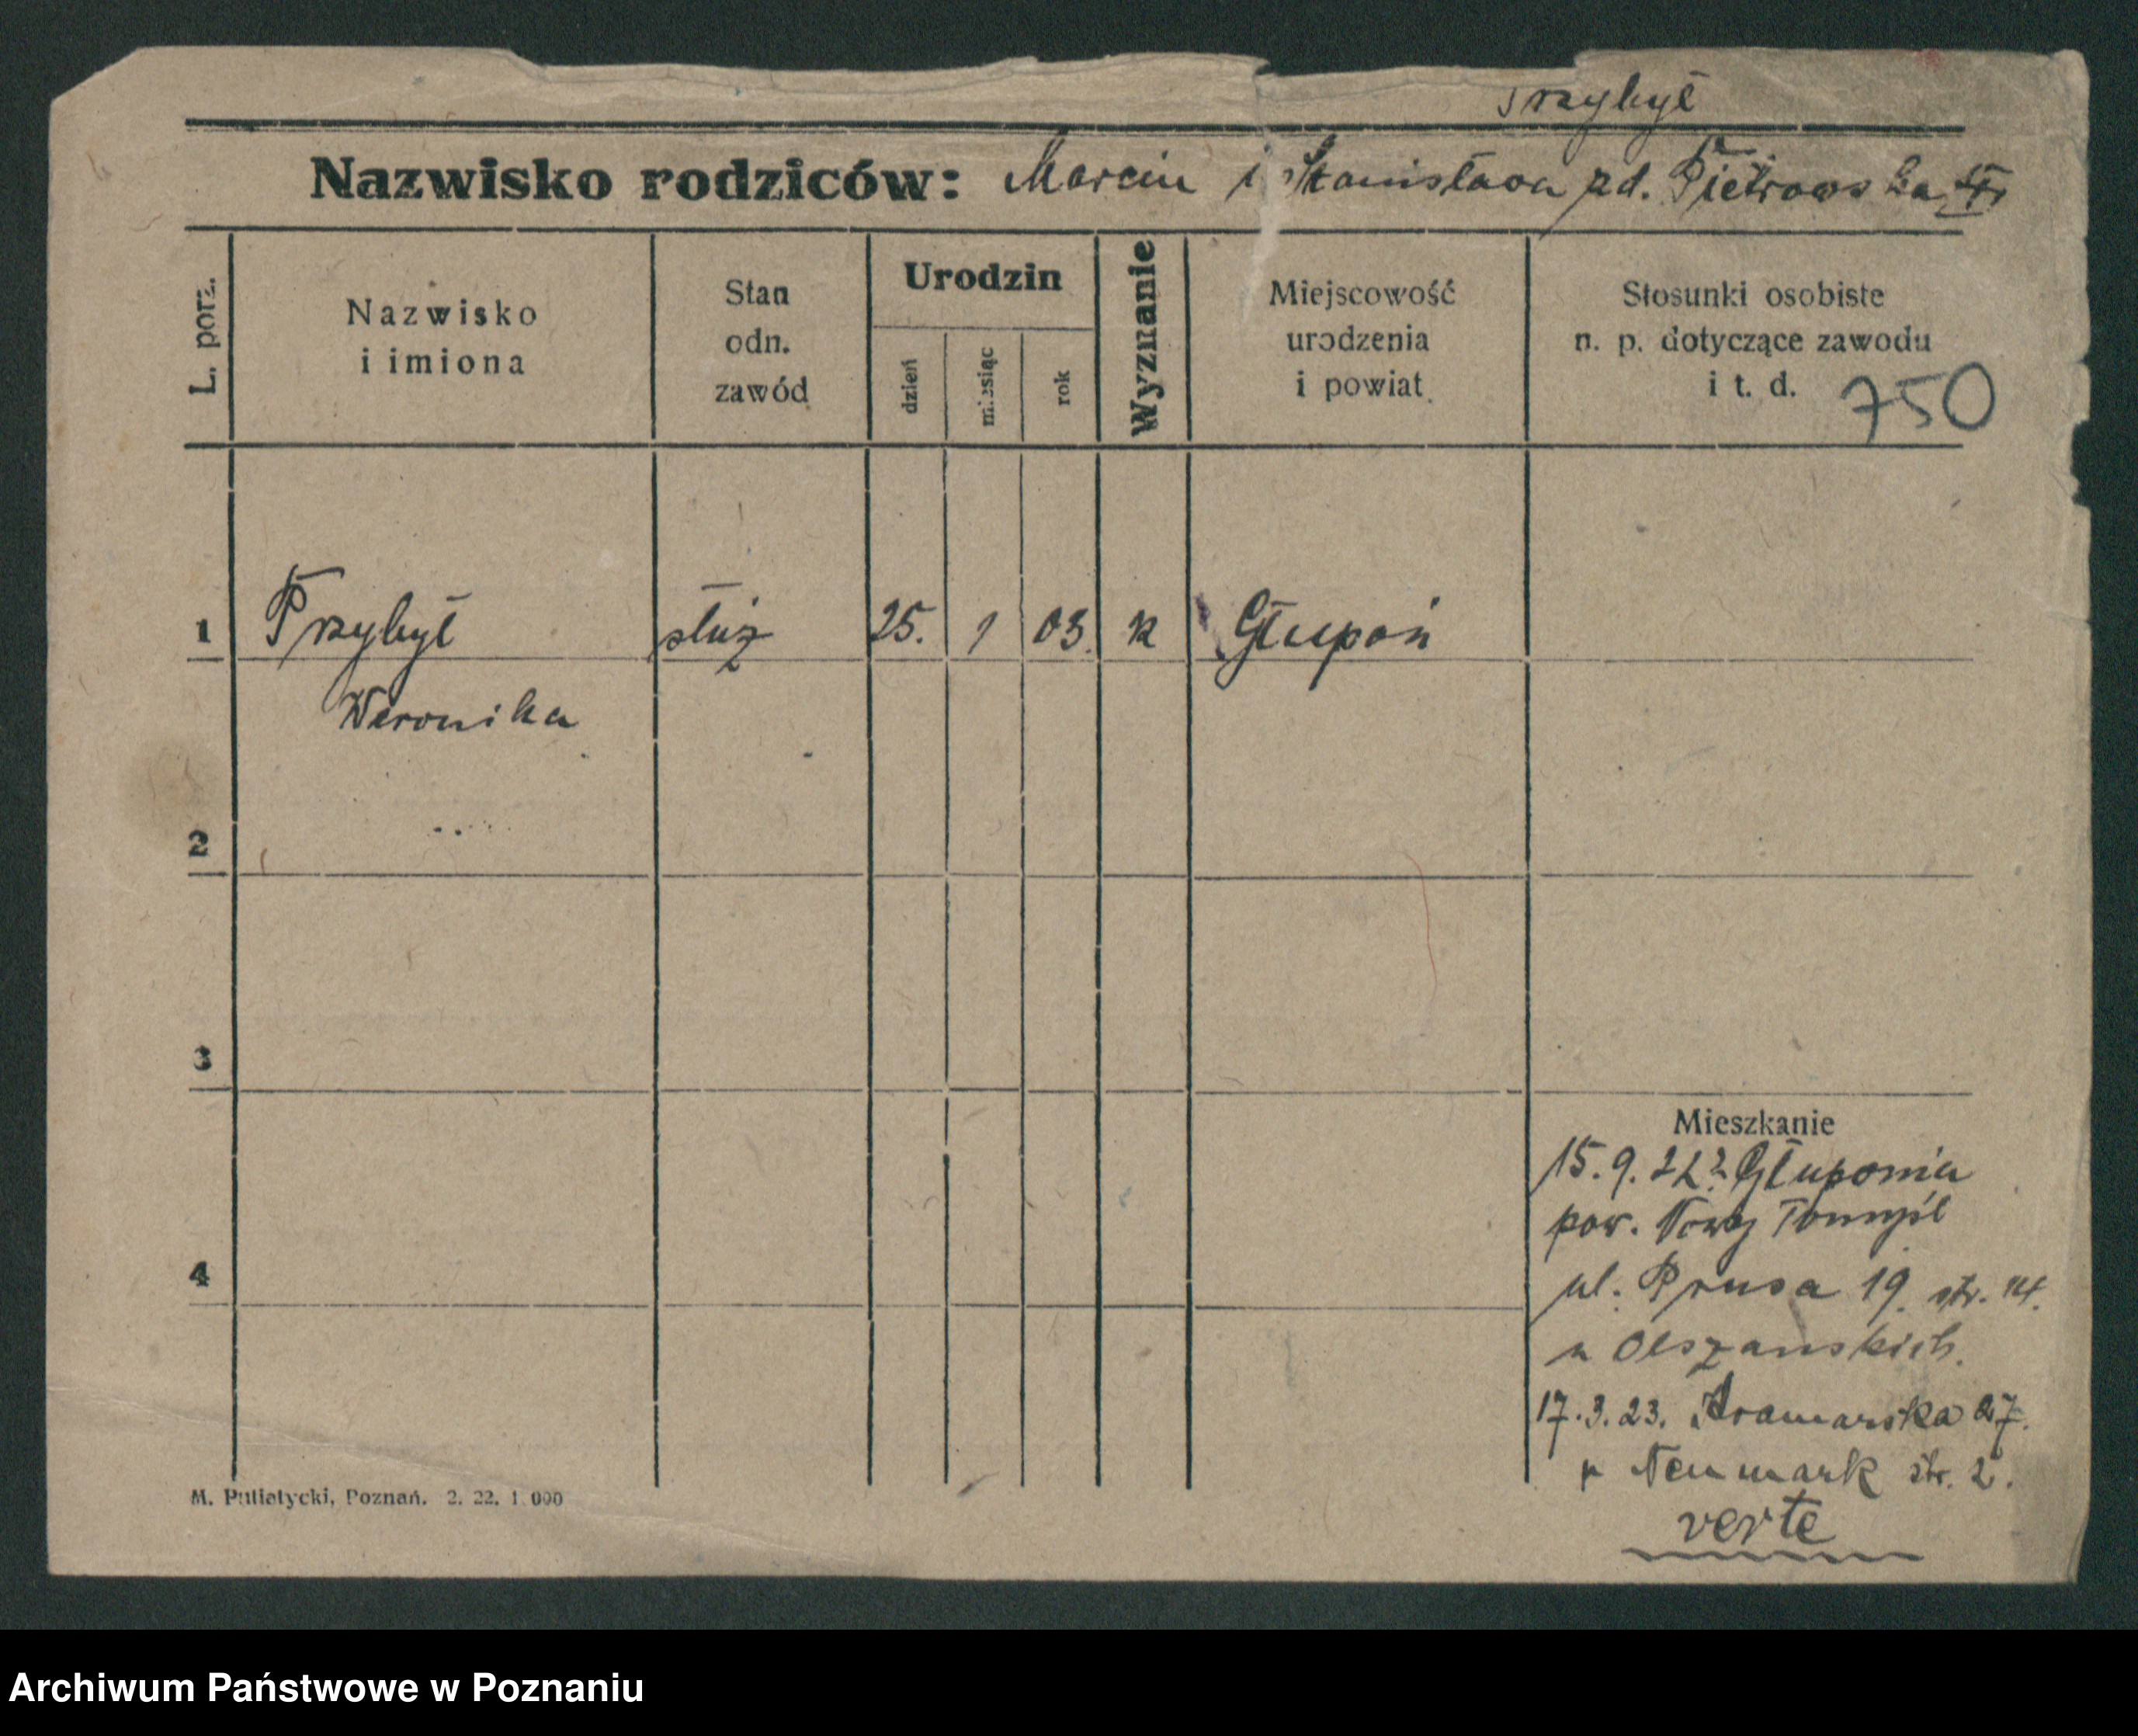 Przybył
Nazwisko rodziców: Marcin i Stanisława zd. Pietrowska
L. porz.
Nazwisko
i imiona
Stan
odn.
zawód
Urodzin
dzień
miesiąc
rok
Wyznanie
Miejscowość
urodzenia
i powiat
Stosunki osobiste
n. p. dotyczące zawodu
i t. d.
750
1 Przybył służ 25. 1 03. k Głupoń
Weronika
2
3
4
Mieszkanie
15. 9. 22 z Głuponia
pow. Nowy Tomyśl
ul. Prusa 19. str. 14.
u Olszanskich.
17. 3. 23. Kramarska 27.
u Neumark str. 2.
verte
M. Putiatycki, Poznań. 2. 22. 1 000
Archiwum Państwowe w Poznaniu